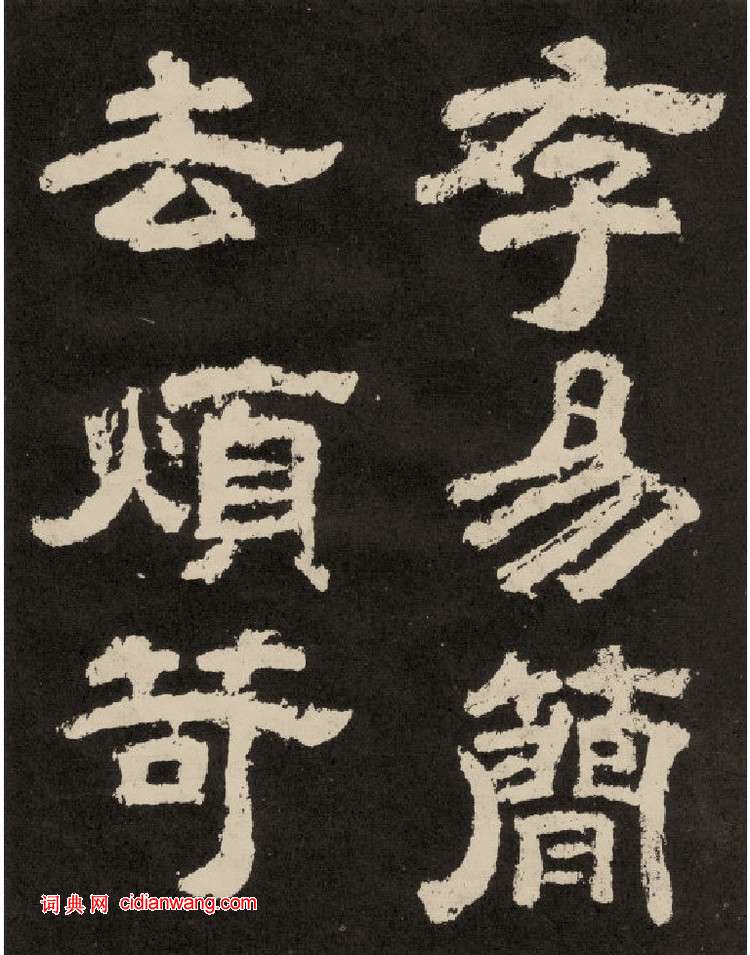 存易簡
去煩苛
词典网 cidianwang.com